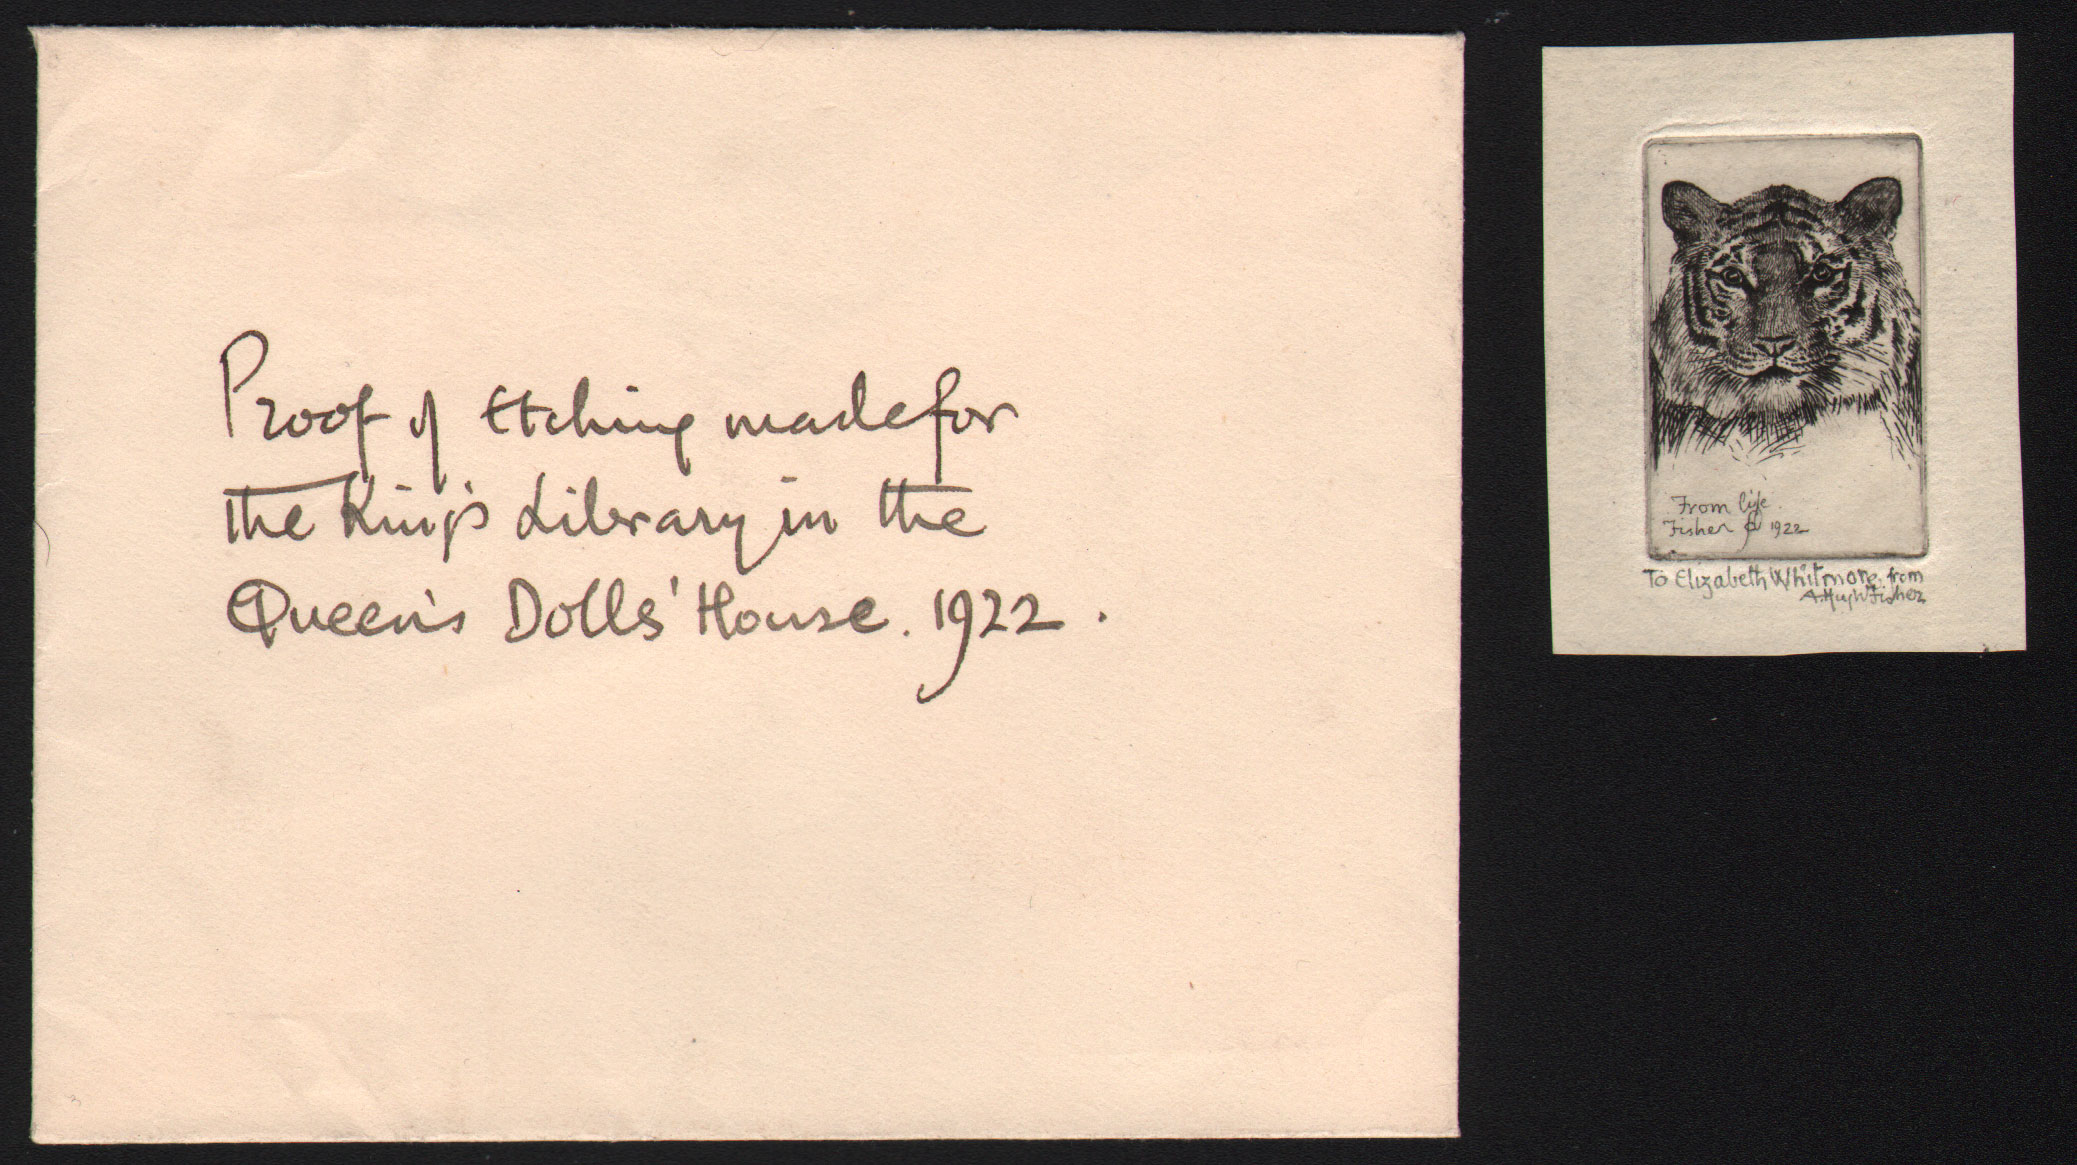 Proof of Etching made for
the King's Library in the
Queen's Dolls' House. 1922.
From life.
Fisher 1922
To Elizabeth Whitmore from
A. Hugh Fisher